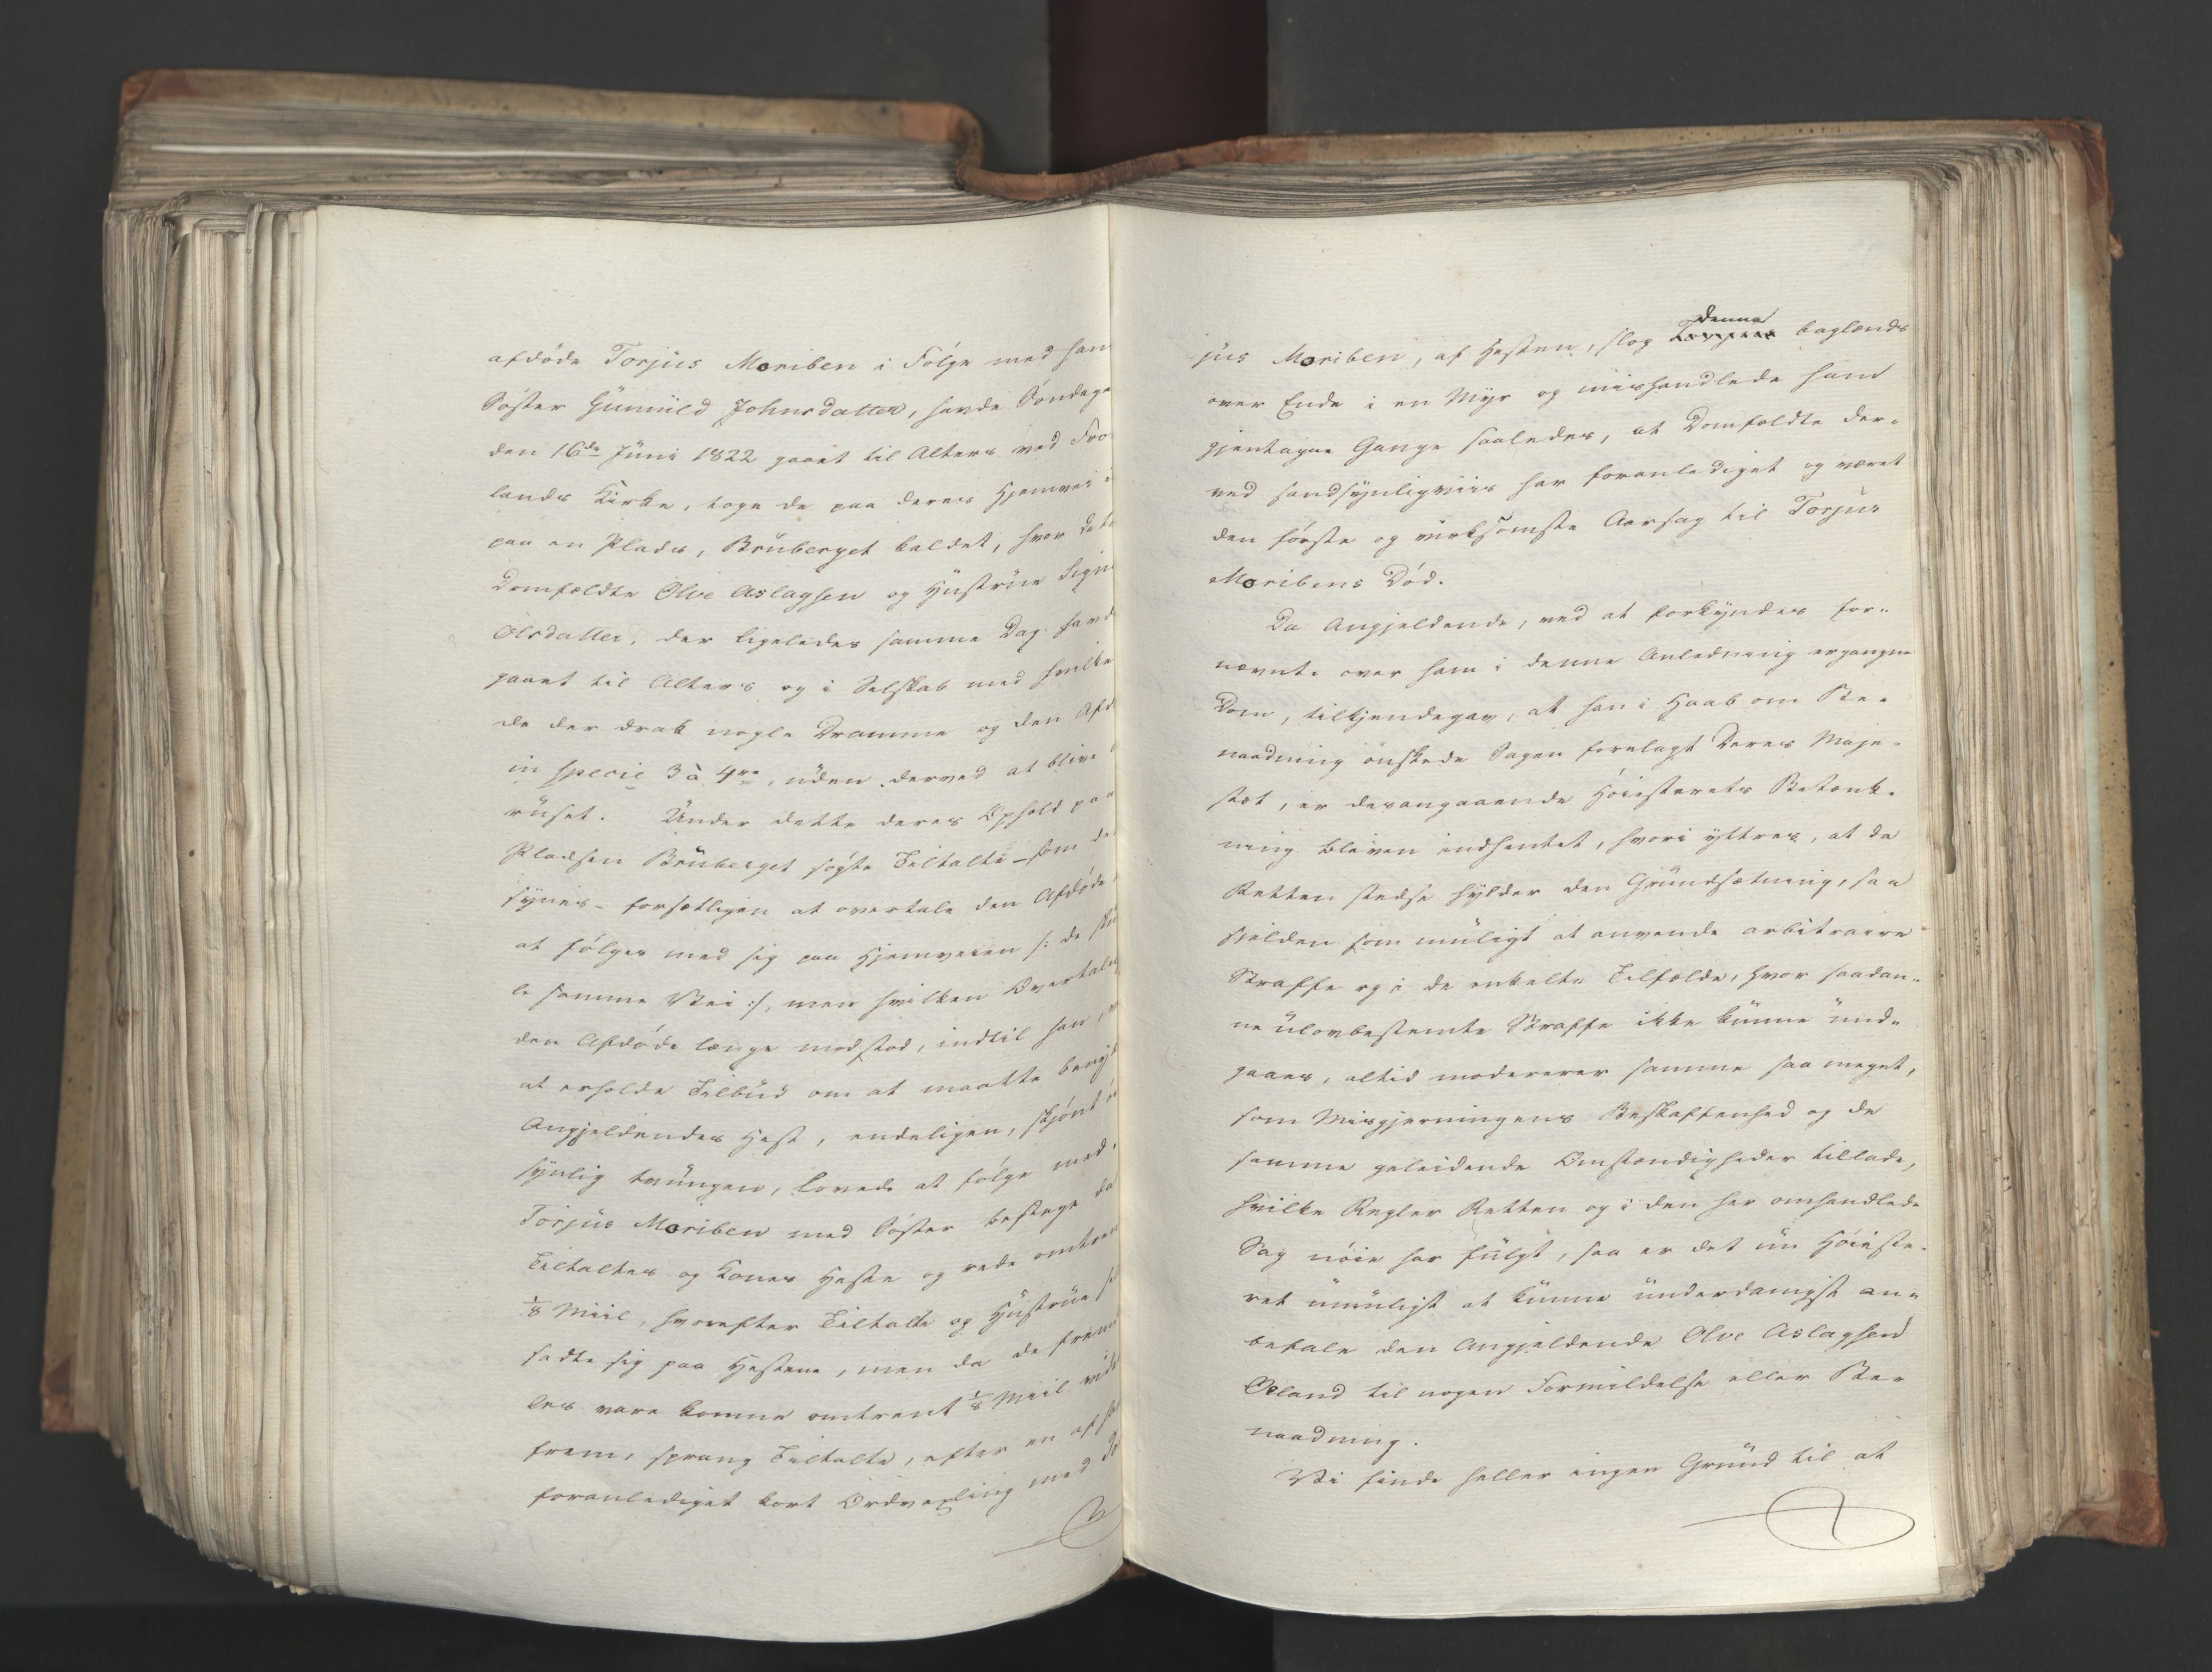 afdöde Torjus Moriben i Følge med han
Søster Gunnild Johnsdatter, havde Søndage
den 16de Juni 1822 gaaet til Alters ved Fro
lands Kirke, toge de paa deres Hjemvei i
paa en Plads, Bruberget kaldet, hvor de t
Domfældte Olve Aslagsen og Hustrue Sign
Olsdatter, der ligeledes samme Dag havd
gaaet til Alters og i Selskab med hvilke
de der drak nogle Dramme og den Afd
in specie 3 à 4re, uden derved at blive
ruset. Under dette deres Ophold paa
Pladsen Bruberget søgte Tiltalte – som de
synes – forsætligen at overtale den Afdøde
at følges med sig paa Hjemveien /: de sku
le samme Vei :/, men hvilken Overtale
den Afdøde længe modstod, indtil han,
at erholde Tilbud om at maatte beny
Angjeldendes Hest, endeligen, skjønt
synlig tvungen, lovede at følge med.
Torjus Moriben med Søster bestege da
Tiltaltes og Kones Heste og rede omtren
1/8 Miil, hvorefter Tiltalte og Hustrue sel
satte sig paa Hestene, men da de frem
les vare komne omtrent 1/8 Miil vide
frem, sprang Tiltalte, efter en af ha
foranlediget kort Ordvexling med To
jus Moriben, af Hesten, slog denne baglænds
over Ende i en Myr og mishandlede ham
gjentagne Gange saaledes, at Domfældte der-
ved sandsynligviis har foranlediget og været
den første og virksomste Aarsag til Torjus
Moribens Død.
Da Angjeldende, ved at forkyndes for-
nævnte over ham i denne Anledning ergangne
Dom, tilkjendegav, at han i Haab om Be-
naadning ønskede Sagen forelagt Deres Maje-
stæt, er desangaaende Høiesterets Betænk-
ning bleven indhentet, hvori yttres, at da
Retten stedse hylder den Grundsætning, saa
sjelden som muligt at anvende arbitraire
Straffe og i de enkelte Tilfælde, hvor saadan-
ne ulovbestemte Straffe ikke kunne und-
gaaes, altid modererer samme saa meget,
som Misgjerningens Beskaffenhed og de
samme geleidende Omstændigheder tillade,
hvilke Regler Retten og i den her omhandlede
Sag nøie har fulgt, saa er det nu Høieste-
ret umuligt at kunne underdanigst an-
befale den Angjeldende Olve Aslagsen
Ovland til nogen Formildelse eller Be-
naadning.
Vi finde heller ingen Grund til at